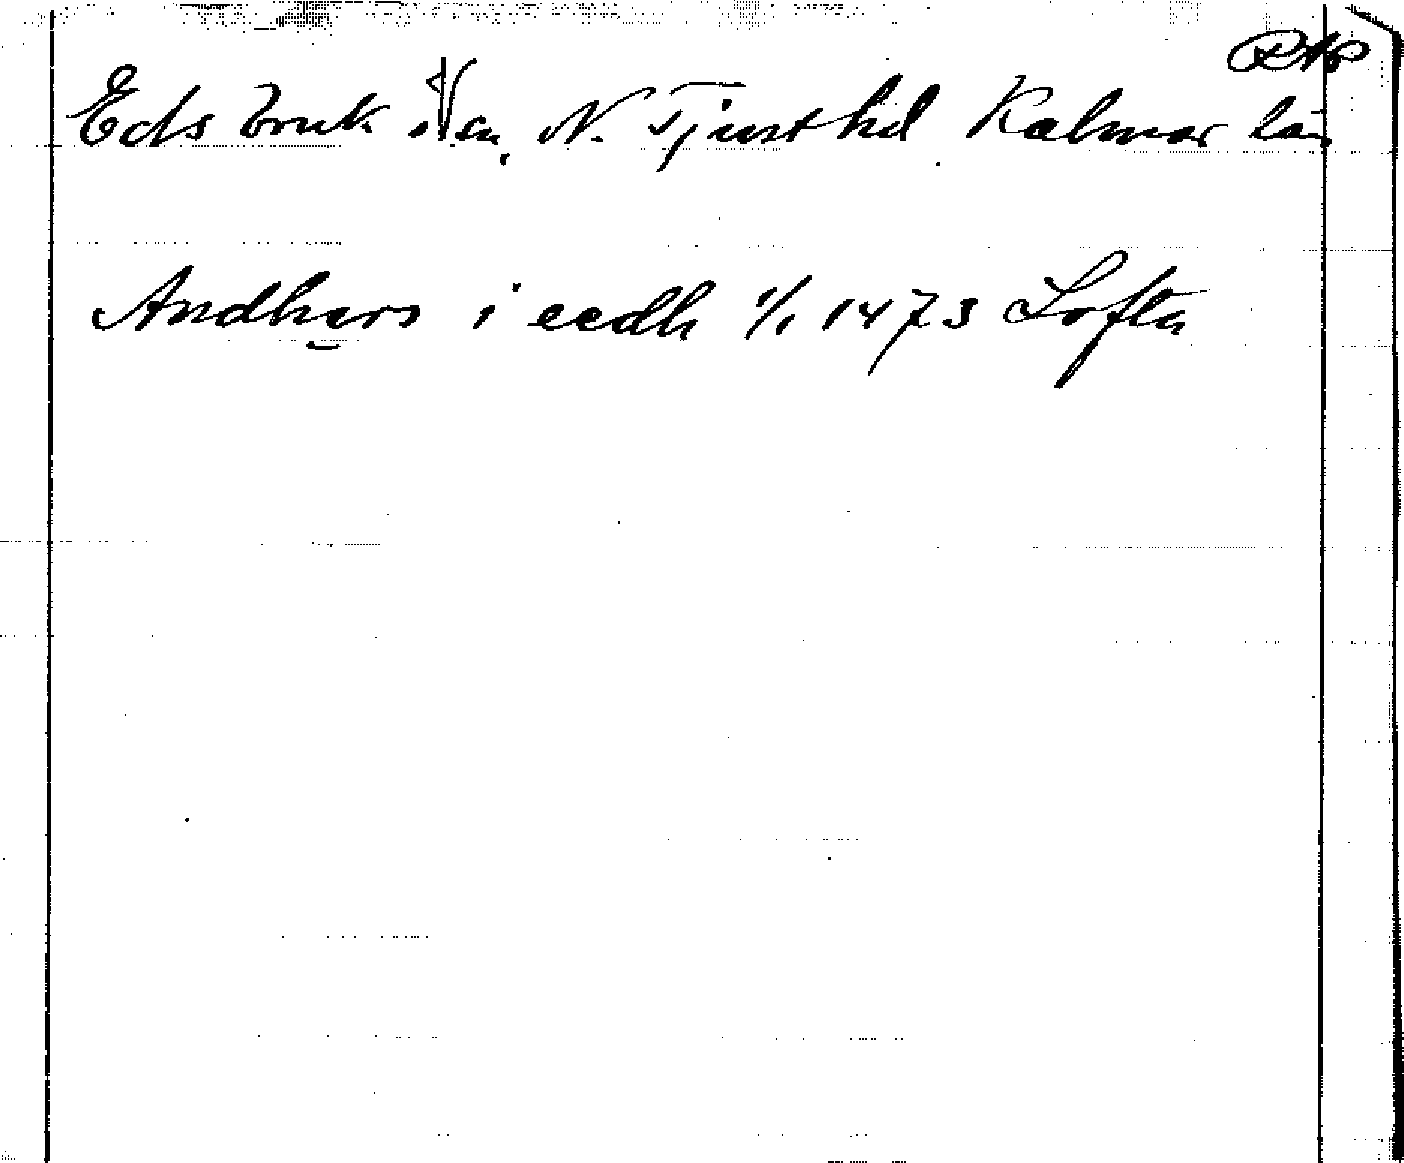 RAp
Eds bruk sn, N. Tjust hd Kalmar län
Andhers i eedh 1/1 1473 Lofta